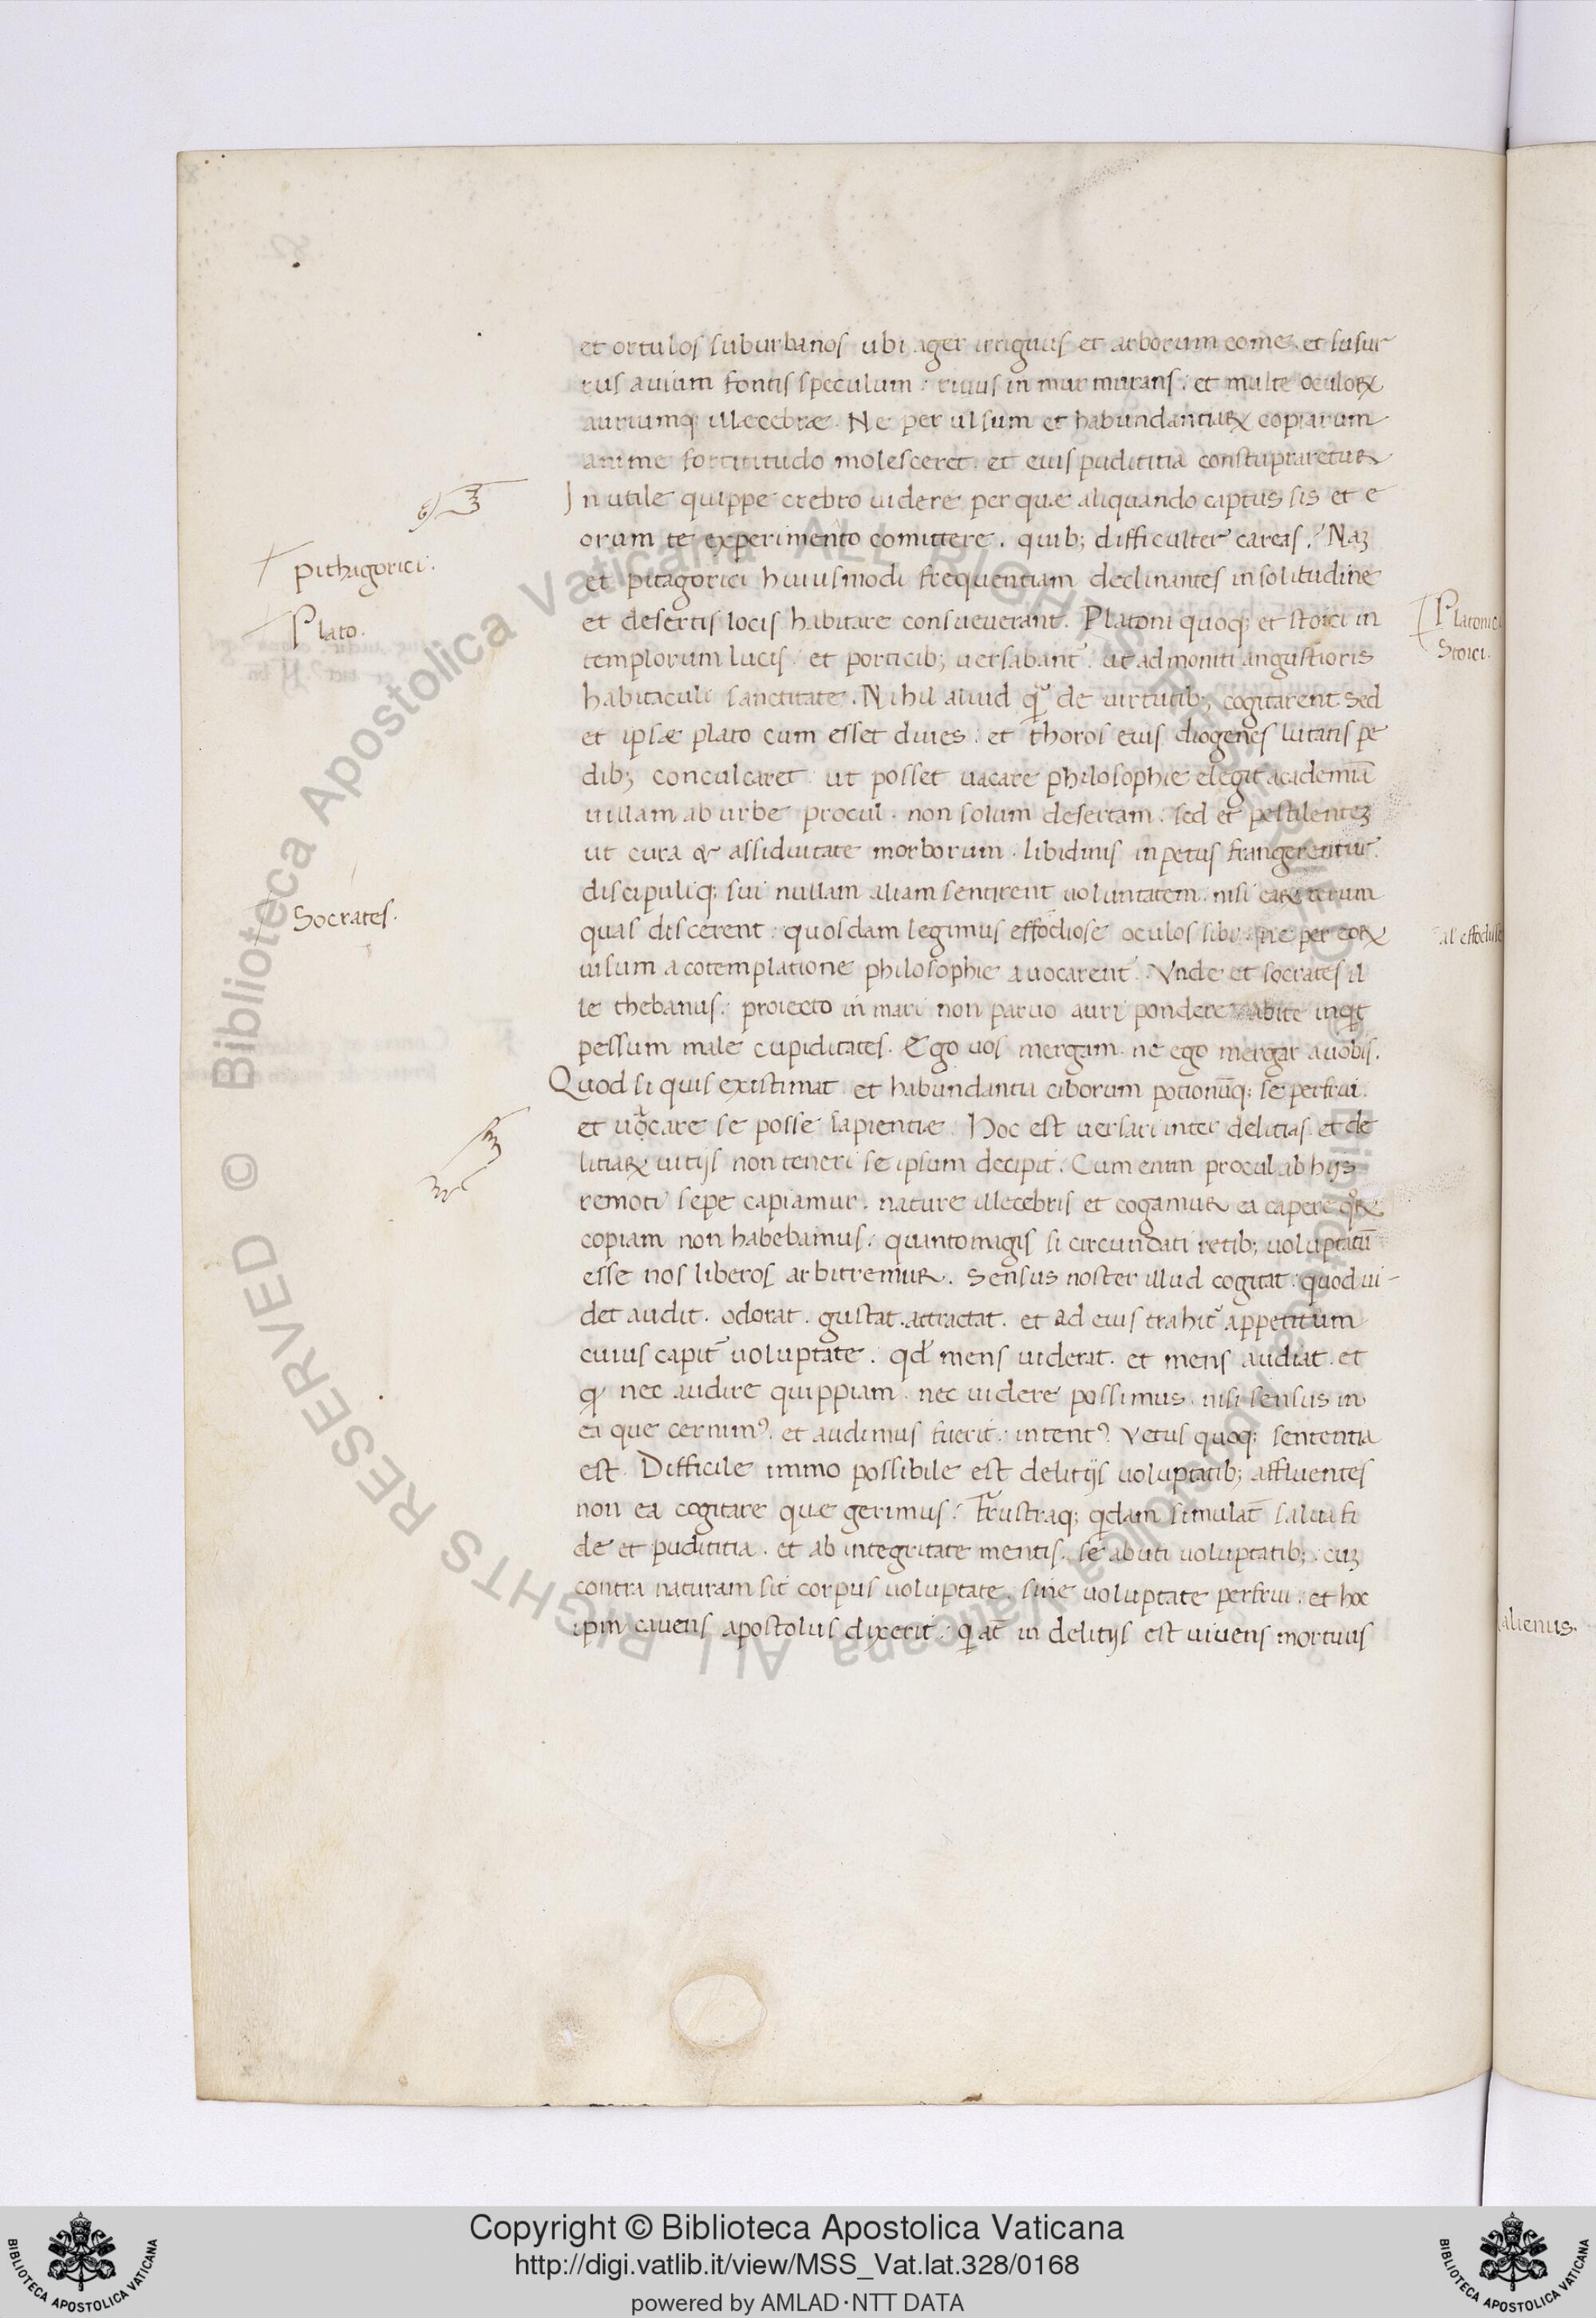 et ortulos suburbanos ubi ager irriguus et arborum come. et susur
rus auium fontis speculum. riuus in murmurans. et multe oculoꝝ
auriumq; illecebræ. Ne per ulsum et habundantiaꝝ copiarum
anime fortititudo molesceret. et eius pudititia constupraretur
Inutile quippe crebro uidere per quæ aliquando captus sis et e
orum te experimento comittere. quib; difficulter careas. Naʒ
et pitagorici huiusmodi frequentiam declinantes in solitudine
et desertis locis habitare consueuerant. Platoni quoq; et stoici in
templorum lucis. et porticib; uersabant̄. ut admoniti angustioris
habitaculi sanctitate. Nihil aliud qͣ̄ de uirtutib; cogitarent. Sed
et ipsæ plato cum esset diues. et thoros eius diogenes lutatis pe
dib; conculcaret. ut posset uacare philosophie elegit academiā
uillam ab urbe procul. non solum desertam. sed et pestilenteʒ
ut cura & assiduitate morborum. libidinis inpetus frangerentur.
discipuliq; sui nullam aliam sentirent uoluntatem. nisi eaꝝ rerum
quas discerent. quosdam legimus effodiose oculos sibi. ne per eoꝝ
uisum a cotemplatione philosophie auocarent̄. Vnde et socrates il
le thebanus. proiecto in mari non paruo auri pondere abite inqͥt
pessum male cupiditates. Ego uos mergam. ne ego mergar a uobis.
Quod si quis existimat et habundantia ciborum potionūq; se perfrui.
et uocare se posse sapientiæ. Hoc est uersari inter delitias. et de
litiaꝝ uitijs non teneri se ipsum decipit. Cum enim procul ab hijs
remoti sepe capiamur. nature illecebris et cogamur ea capere qͦꝝ
copiam non habebamus. quanto magis si circundati retib; uoluptatū
esse nos liberos arbitremur. Sensus noster illud cogitat. quod ui-
det audit. odorat. gustat. attractat. et ad eius trahit̄ appetitum
cuius capit̄ uoluptate. qd̄ mens uiderat. et mens audiat. et
ꝙ nec audire quippiam. nec uidere possimus. nisi sensus in
ea que cernimꝰ. et audimus fuerit. intentꝰ. Vetus quoq; sententia
est. Difficile immo possibile est delitijs uoluptatib; affluentes
non ea cogitare quæ gerimus. Frustraq; qͥdam simulat̄ salua fi
de et pudititia. et ab integritate mentis. se abuti uoluptatib;. cuʒ
contra naturam sit corpus uoluptate. sine uoluptate perfrui. et hoc
ipm̄ cauens apostolus dixerit. q̄ at̄ in delitijs est uiuens mortuus
pithagorici.
Plato.
Socrates.
Platonici
Stoici.
al effodisse
alienus.
Biblioteca Apostolica Vaticana ALL RIGHTS RESERVED ©
Copyright © Biblioteca Apostolica Vaticana
http://digi.vatlib.it/view/MSS_Vat.lat.328/0168
powered by AMLAD·NTT DATA
BIBLIOTECA APOSTOLICA VATICANA
BIBLIOTECA APOSTOLICA VATICANA